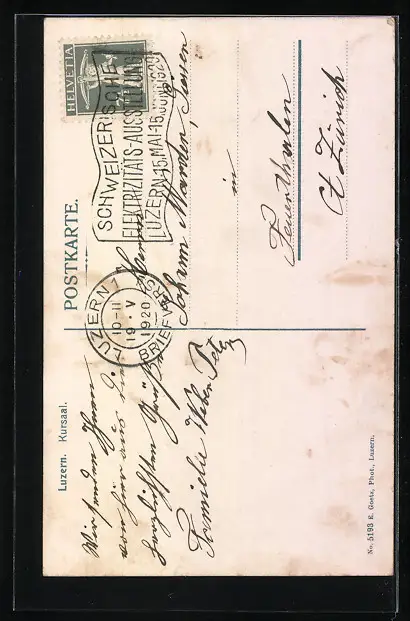 Luzern. Kursaal.
POSTKARTE.
HELVETIA
SCHWEIZERISCHE
ELEKTRIZITÄTS-AUSSTELLUNG
LUZERN 15.MAI-15.
LUZERN 1
10-11
19. V
1920
BRIEFVERS.
Wir senden Ihnen
von hier aus die
herzlichsten Grüße
Familie Weber
Herrn
Johann
in
Feuerthalen
Ct Zürich
No. 5193 E. Goetz, Phot., Luzern.